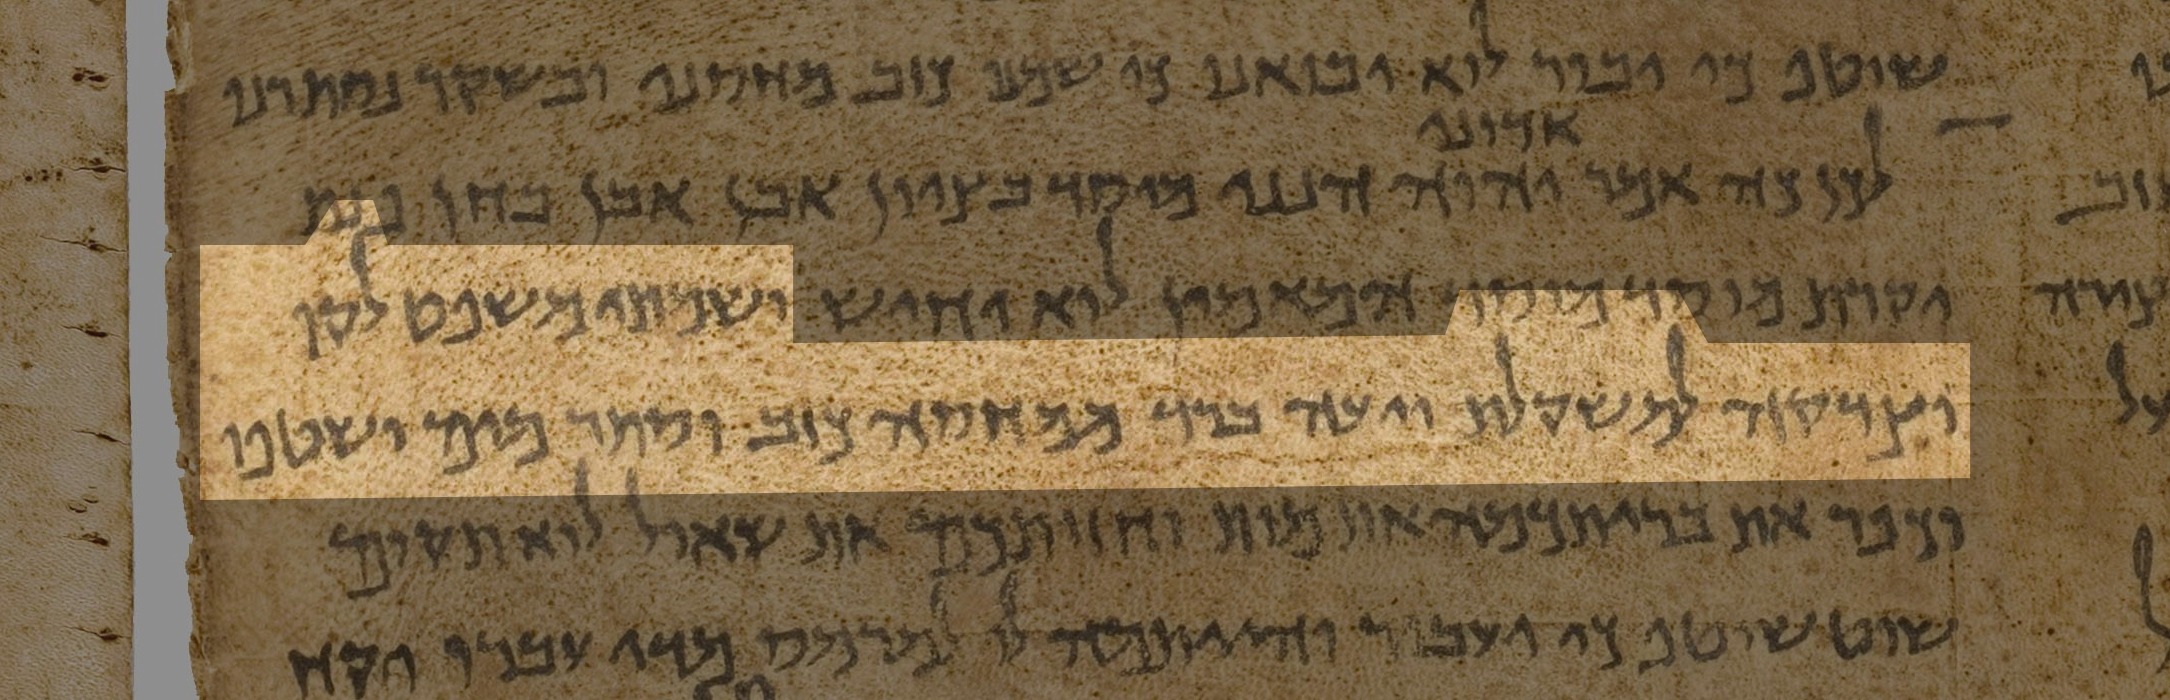 שוטף כי יבור לוא יבואנו כי שמנו כזב מחסנו ובשקר נסתרנו
אדוני
לכן כה אמר יהוה הנני מיסד בציון אבן אבן בחן פנת
יקרת מוסד מוסד המאמין לוא יחיש ושמתי משפט לקו
וצדקה למשקלת ויעה ברד מחסה כזב וסתר מים ישטפו
וכפר את בריתכמה את מות וחזותכם את שאול לוא תקום
שוט שוטף כי יעבור והייתמה לו למרמס מדי עברו יקח